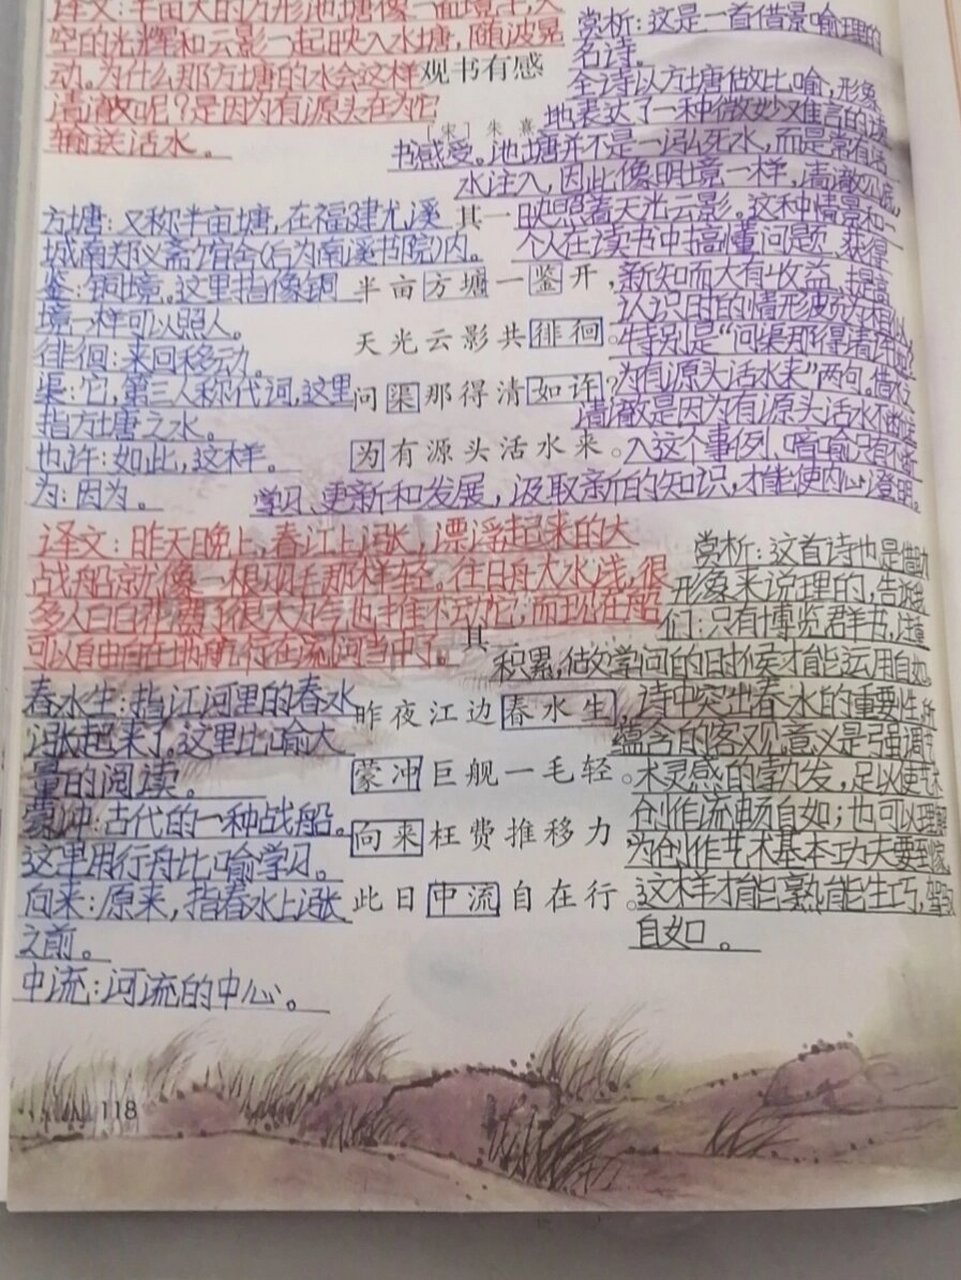 译文：半亩大的方形池塘像一面境子，天
空的光辉和云影一起映入水塘，随波晃
动。为什么那方塘的水会这样
清澈呢？是因为有源头在为它
输送活水。
观书有感
[宋] 朱熹
赏析：这是一首借景喻理的
名诗。
全诗以方塘做比喻，形象
地表达了一种微妙难言的读
书感受。池塘并不是一泓死水，而是常有活
水注入，因此像明境一样，清澈见底，
映照着天光云影。这种情景和一
个人在读书中搞懂问题、获得
新知而大有收益、提高
认识时的情形颇为相似。
特别是“问渠那得清如许？
为有源头活水来”两句，借水之
清澈是因为有源头活水不断注
入这个事例，暗喻只有不断
学习、更新和发展，汲取新的知识，才能使内心澄明。
其一
方塘：又称半亩塘，在福建尤溪
城南郑义斋馆舍（后为南溪书院）内。
鉴：铜境。这里指像铜
境一样可以照人。
徘徊：来回移动。
渠：它，第三人称代词，这里
指方塘之水。
也许：如此，这样。
为：因为。
半亩方塘一鉴开，
天光云影共徘徊。
问渠那得清如许？
为有源头活水来。
译文：昨天晚上，春江上涨，漂浮起来的大
战船就像一根羽毛那样轻。往日舟大水浅，很
多人白白花费了很大力气也推不动它，而现在船
可以自由自在地航行在流河当中了。
其
赏析：这首诗也是借助
形象来说理的，告诉我
们：只有博览群书，注重
积累，做学问的时候才能运用自如。
诗中突出春水的重要性，所
蕴含的客观意义是强调艺
术灵感的勃发，足以使艺术
创作流畅自如；也可以理解
为创作艺术基本功夫要到家，
这样才能熟能生巧，驾驭
自如。
春水生：指江河里的春水
涨起来了。这里比喻大
量的阅读。
蒙冲：古代的一种战船。
这里用行舟比喻学习。
向来：原来，指春水上涨
之前。
中流：河流的中心。
昨夜江边春水生，
蒙冲巨舰一毛轻。
向来枉费推移力，
此日中流自在行。
118